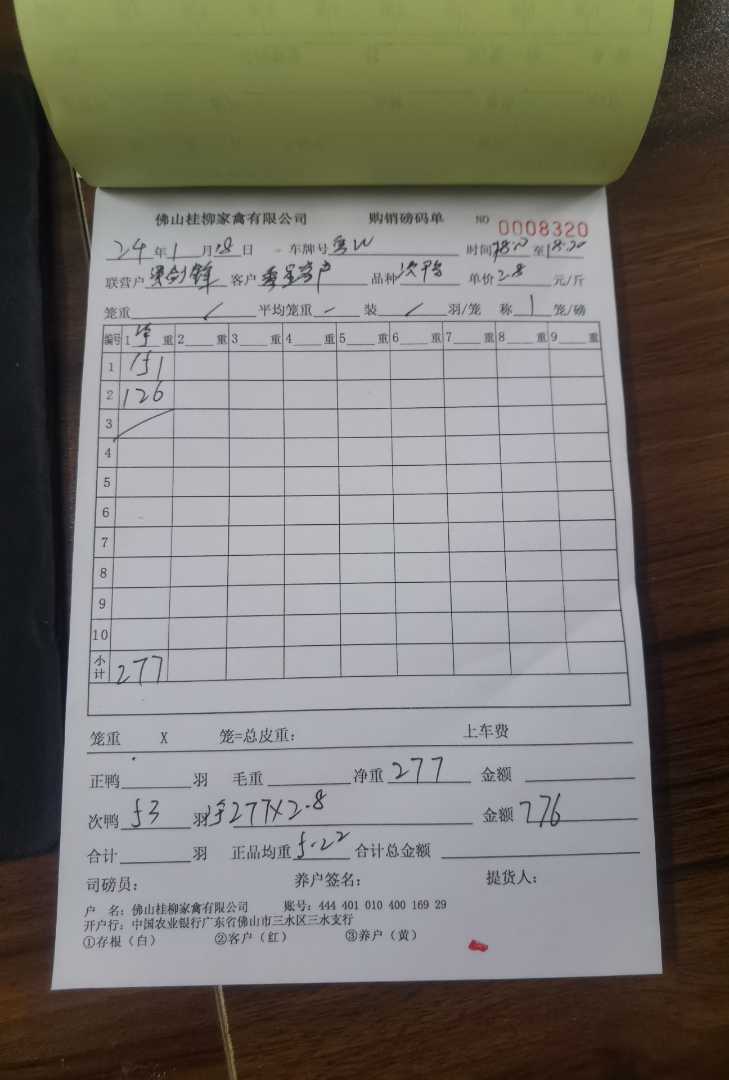 佛山桂柳家禽有限公司 购销磅码单 NO 0008320
24年1月18日 车牌号粤W 时间18:00至18:20
联营户 客户 品种次鸭 单价2.8元/斤
笼重 平均笼重 装 羽/笼 称1笼/磅
编号 1净重 2重 3重 4重 5重 6重 7重 8重 9重
1 151
2 126
3
4
5
6
7
8
9
10
小计 277
笼重 X 笼=总皮重: 上车费
正鸭 羽 毛重 净重277 金额
次鸭53羽净277X2.8 金额776
合计 羽 正品均重5.22 合计总金额
司磅员: 养户签名: 提货人:
户 名: 佛山桂柳家禽有限公司 账号: 444 401 010 400 169 29
开户行: 中国农业银行广东省佛山市三水区三水支行
①存根（白） ②客户（红） ③养户（黄）